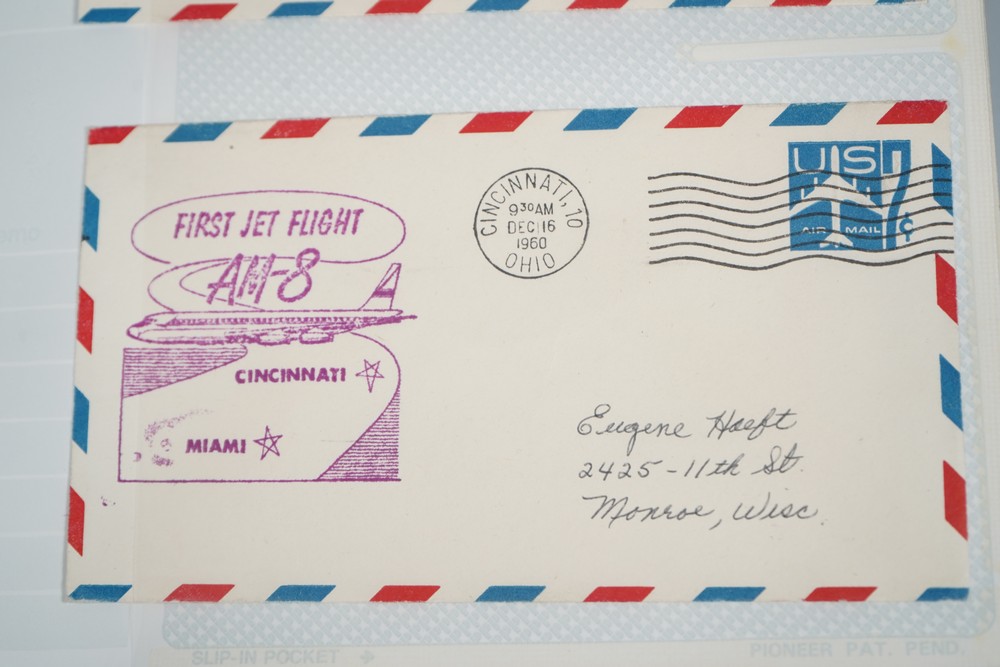 FIRST JET FLIGHT
AM-8
CINCINNATI
MIAMI
CINCINNATI, 10
930 AM
DEC 16
1960
OHIO
US
7¢
AIR MAIL
Eugene Haeft
2425-11th St.
Monroe, Wisc.
SLIP-IN POCKET
PIONEER PAT. PEND.